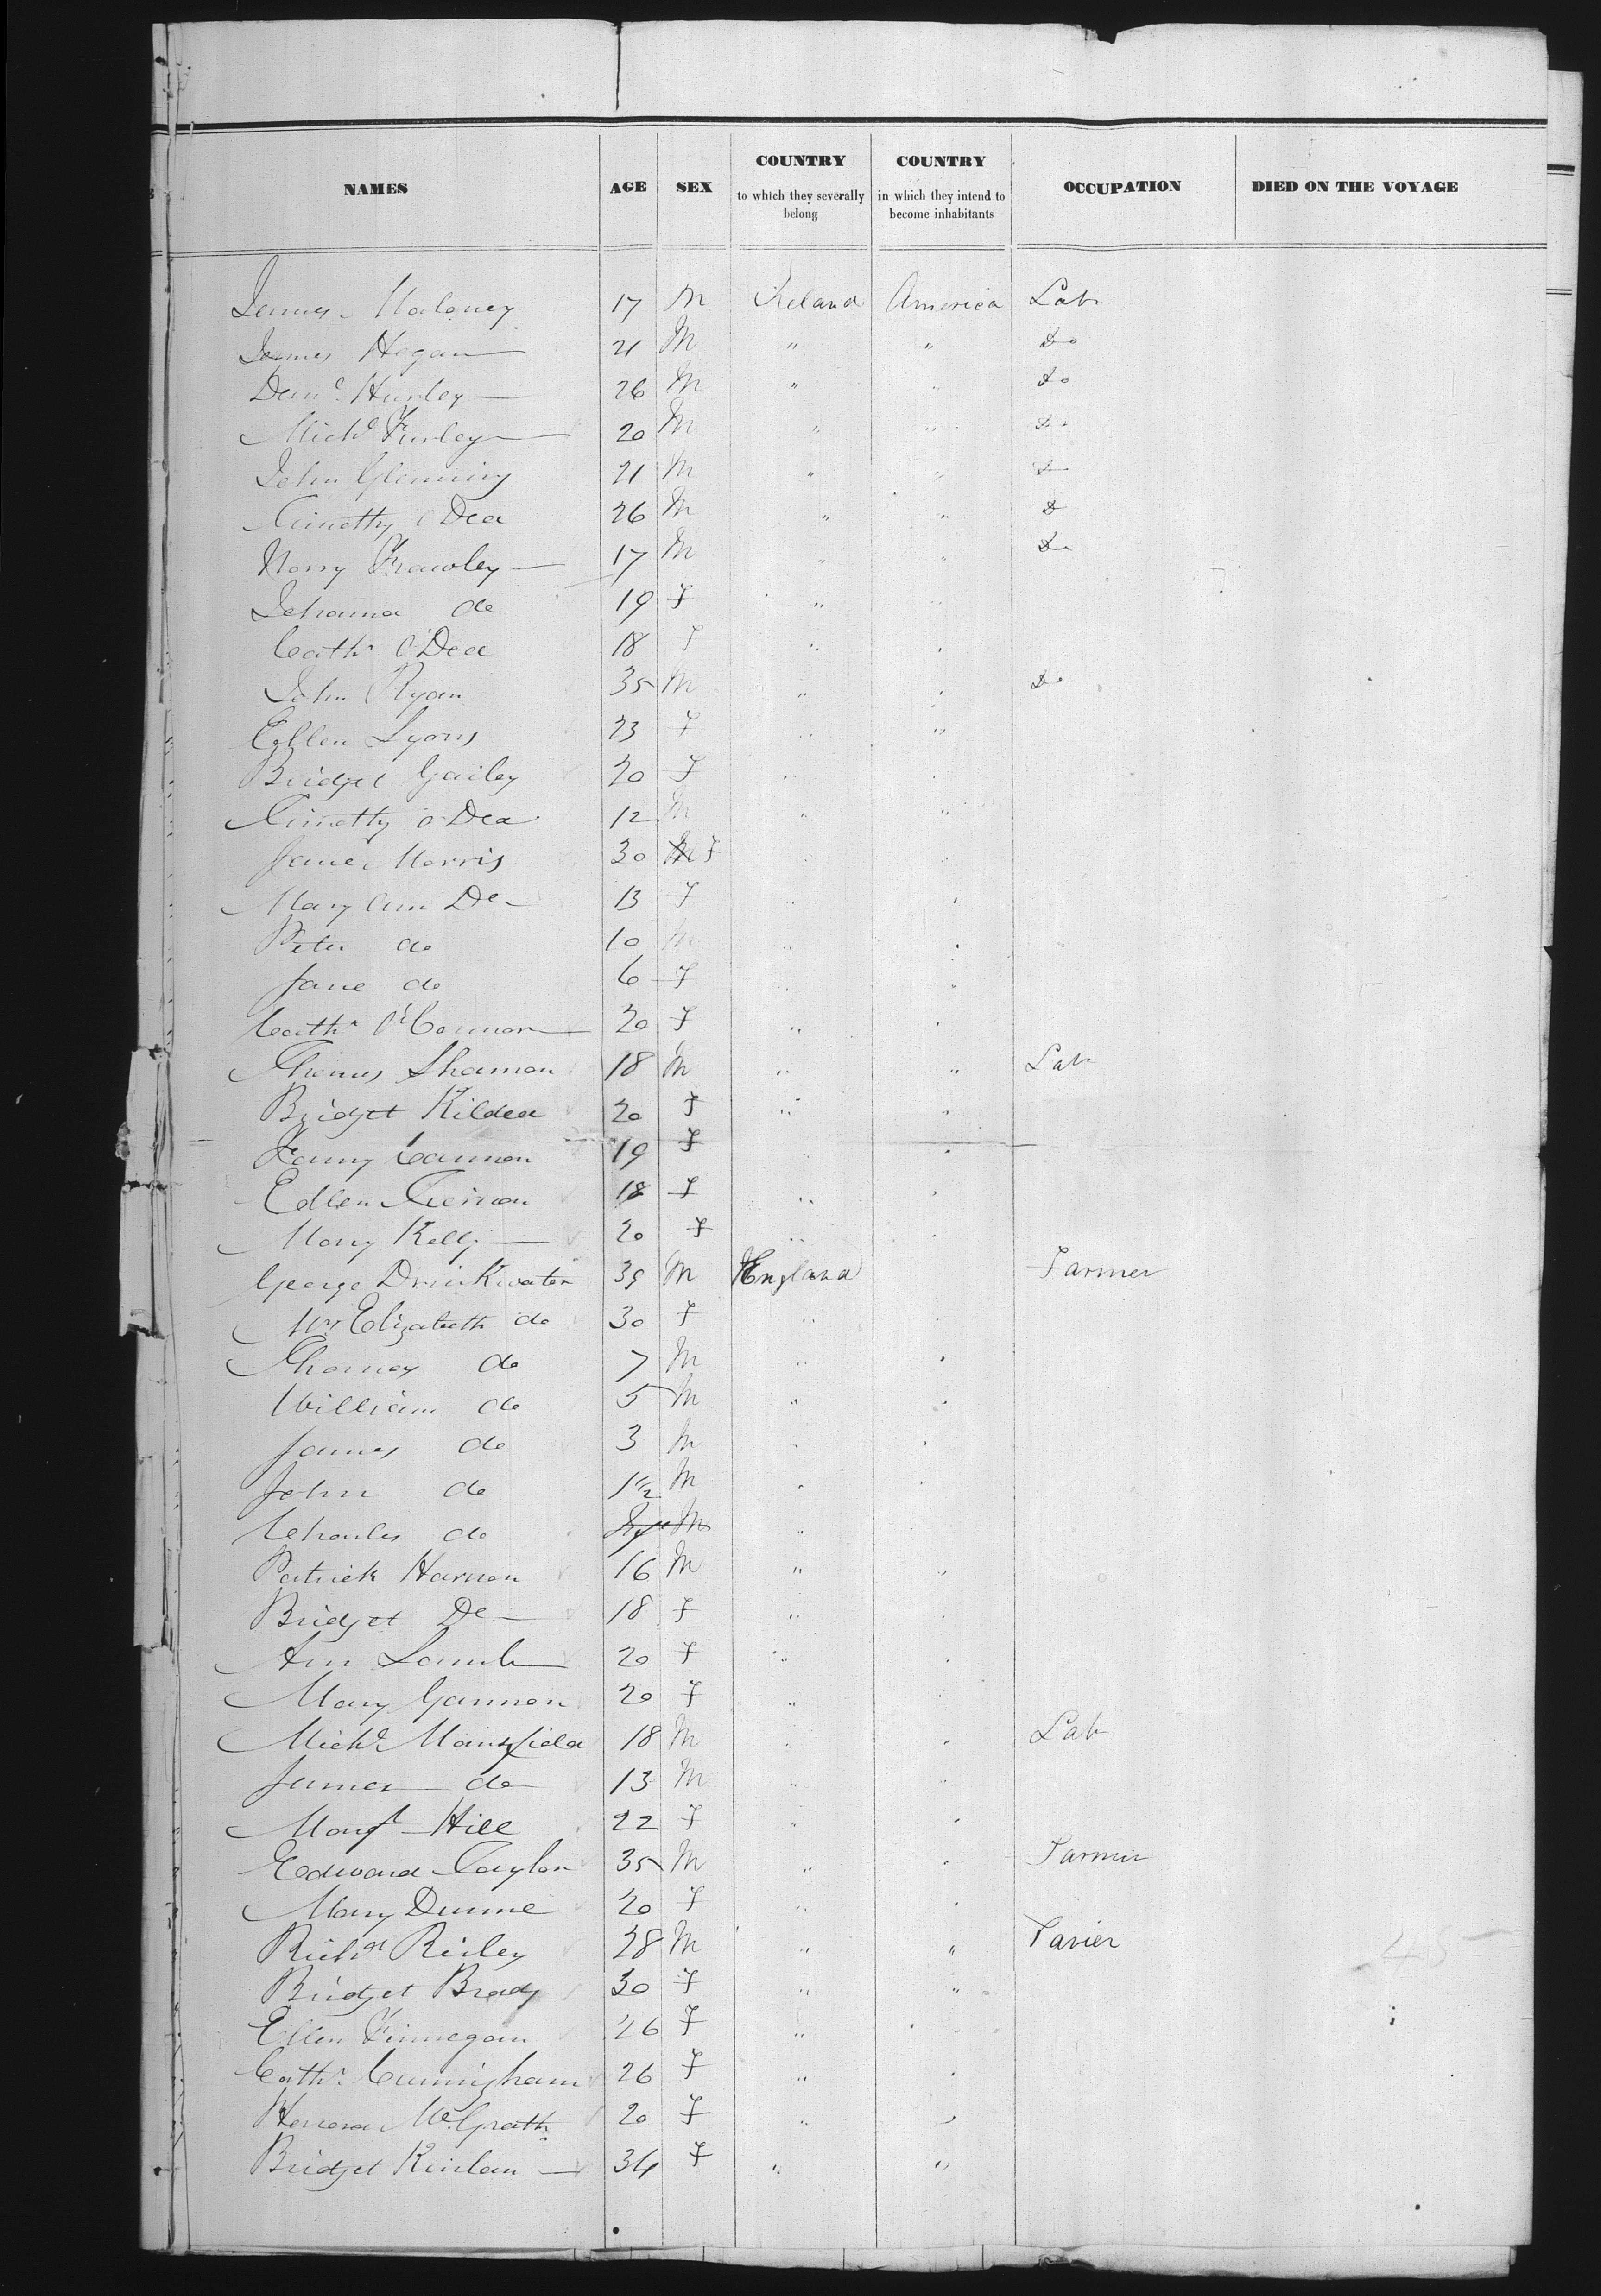 NAMES AGE SEX COUNTRY to which they severally belong COUNTRY in which they intend to become inhabitants OCCUPATION DIED ON THE VOYAGE
James Maloney 17 M Ireland America Lab
James Hogan 21 M " " Do
Danl Hurley 26 M " " Do
Michl Furley 20 M " " Do
John Glenning 21 M " " Do
Timothy O'Dea 26 M " " Do
Harry Frawley 17 M " " Do
Johanna do 19 F " "
Cathn O'Dea 18 F " "
John Ryan 35 M " " Do
Ellen Lyons 23 F " "
Bridget Gailey 20 F " "
Timothy O'Dea 12 M " "
Jane Morris 30 F " "
Mary Ann Do 13 F " "
Peter do 10 M " "
Jane do 6 F " "
Cathn O'Connor 20 F " "
Thomas Shannon 18 M " " Lab
Bridget Kildea 20 F " "
Fanny Cannon 19 F " "
Ellen Tiernan 18 F " "
Mary Kelly 20 F " "
George Drinkwater 39 M England Farmer
Mrs Elizabeth do 30 F " "
Thomas do 7 M " "
William do 5 M " "
James do 3 M " "
John do 1 1/2 M " "
Charles do M "
Patrick Harnon 16 M " "
Bridget Do 18 F " "
Ann Lamb 20 F " "
Mary Gannon 20 F " "
Michl Mansfield 18 M " " Lab
James do 13 M " "
Margt Hill 22 F " "
Edward Taylor 35 M " " Farmer
Mary Dunne 20 F " "
Richd Reiley 28 M " " Pavier
Bridget Brady 30 F " "
Ellen Finnegan 26 F " "
Cathn Cunningham 26 F " "
Honora McGrath 20 F " "
Bridget Kinlan 34 F " "